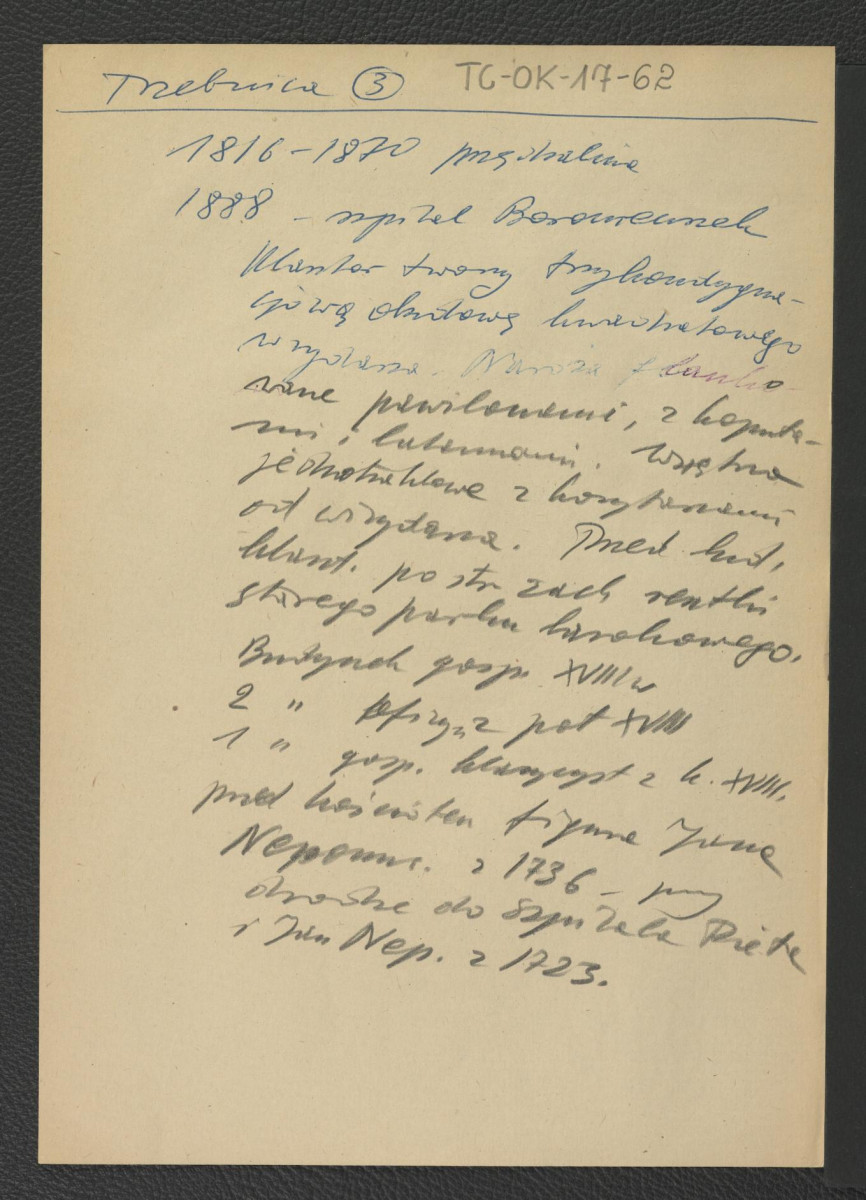 Trzebnica ③ TC-OK-17-62
1816-1870 przędzalnia
1888 - szpital Boromeuszek
Klasztor tworzy trzykondygna-
cjową obudowę kwadratowego
wirydarza. Naroża flanko-
wane pawilonami, z kopuła-
mi i latarniami. Wnętrza
jednotraktowe z korytarzami
od wirydarza. Przed bud.
klaszt. po str. zach resztki
starego parku barokowego.
Budynek gosp. XVIII w
2 " oficyny z poł XVIII
1 " gosp. klasycyst z k. XVIII.
przed kościołem figura Jana
Nepomuc. z 1736 - przy
drodze do Szpitala Pieta
i Jan Nep. z 1723.